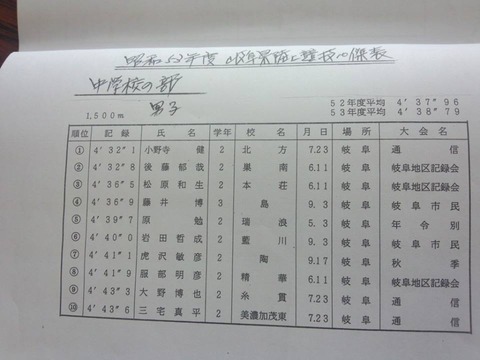 昭和53年度 岐阜県陸上競技10傑表
中学校の部
男子
52年度平均 4'37"96
53年度平均 4'38"79
1,500m
順位 記録 氏名 学年 校名 月日 場所 大会名
① 4'32"1 小野寺 健 2 北方 7.23 岐阜 通信
② 4'32"8 後藤郁哉 2 巣南 6.11 岐阜 岐阜地区記録会
③ 4'36"5 松原和生 2 本荘 6.11 岐阜 岐阜地区記録会
④ 4'36"9 藤井 博 3 島 9.3 岐阜 岐阜市民
⑤ 4'39"7 原 勉 2 瑞浪 5.3 岐阜 年令別
⑥ 4'40"0 岩田哲成 2 藍川 9.3 岐阜 岐阜市民
⑦ 4'41"1 虎沢敏彦 2 陶 9.17 岐阜 秋季
⑧ 4'41"9 服部明彦 2 精華 6.11 岐阜 岐阜地区記録会
⑨ 4'43"3 大野博也 2 糸貫 7.23 岐阜 通信
⑩ 4'43"6 三宅真平 2 美濃加茂東 7.23 岐阜 通信